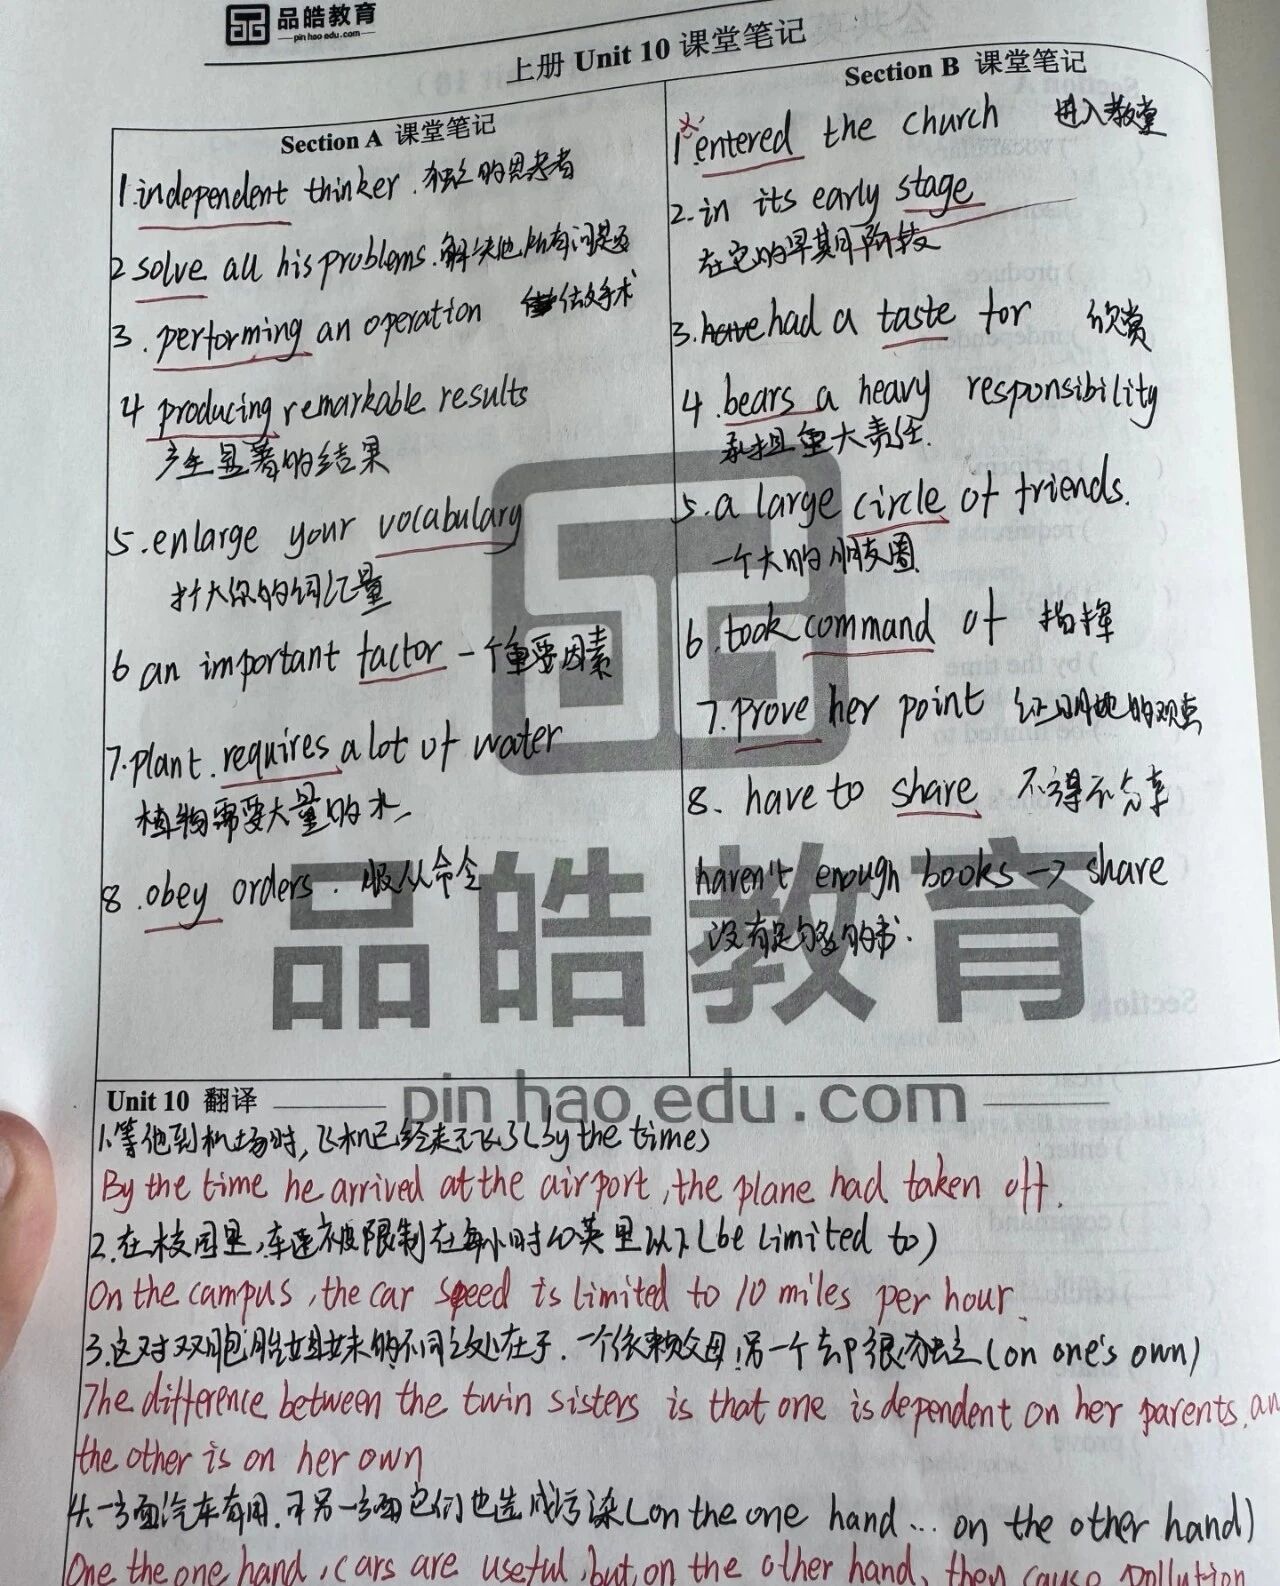 品皓教育
pin hao edu.com
上册 Unit 10 课堂笔记
Section A 课堂笔记
1.independent thinker.独立的思考者
2 solve all his problems.解决他所有问题
3. performing an operation 做手术
4 producing remarkable results
产生显著的结果
5.enlarge your vocabulary
扩大你的词汇量
6 an important factor 一个重要因素
7.plant.requires a lot of water
植物需要大量的水
8.obey orders. 服从命令
Section B 课堂笔记
1.entered the church 进入教堂
2.in its early stage
在它的早期阶段
3.have had a taste for 欣赏
4.bears a heavy responsibility
承担重大责任.
5.a large circle of friends.
一个大的朋友圈
6.took command of 指挥
7.prove her point 证明她的观点
8. have to share 不得不分享
haven't enough books → share
没有足够的书.
品皓教育
pin hao edu.com
Unit 10 翻译
1.等他到机场时,飞机已经起飞了(by the time)
By the time he arrived at the airport,the plane had taken off.
2.在校园里,车速被限制在每小时10英里以下(be limited to)
On the campus,the car speed is limited to 10 miles per hour.
3.这对双胞胎姐妹的不同之处在于.一个依赖父母,另一个却很独立(on one's own)
The difference between the twin sisters is that one is dependent on her parents,an
the other is on her own
4.一方面汽车有用.可另一方面它们也造成污染(on the one hand... on the other hand)
One the one hand,cars are useful,but on the other hand, they cause pollution